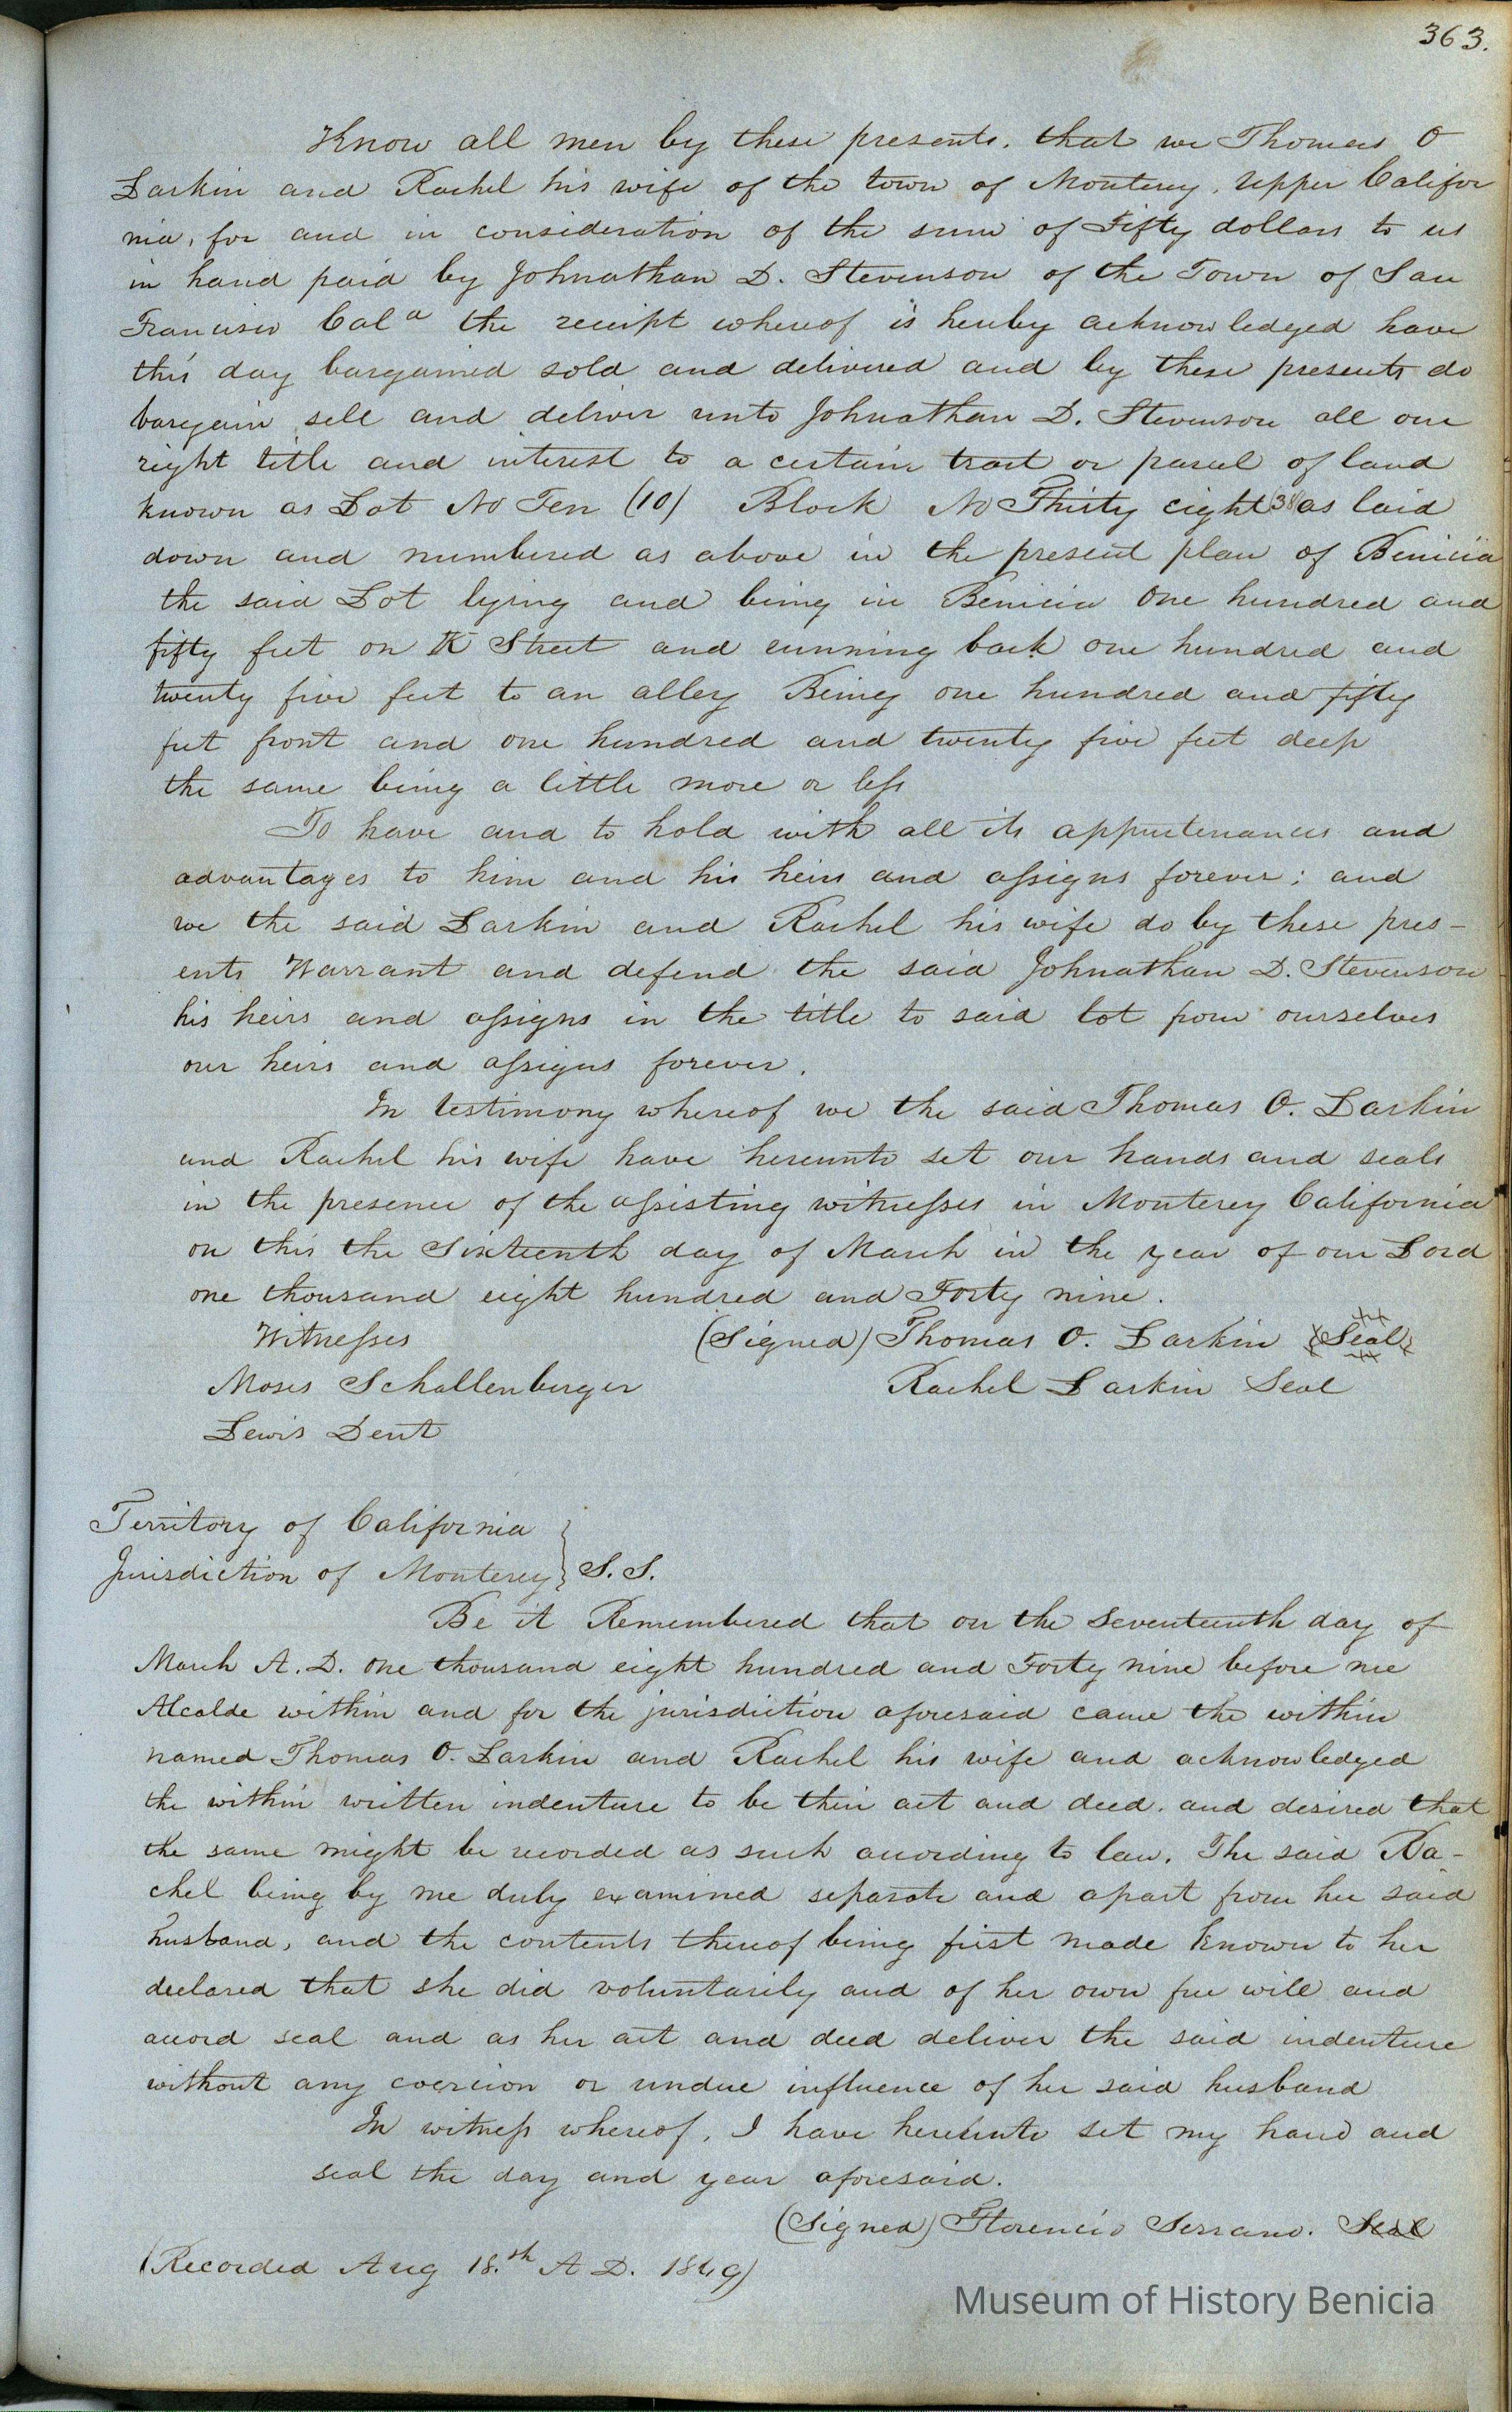 363.
Know all men by these presents. that we Thomas O
Larkin and Rachel his wife of the town of Monterey, Upper Califor
nia, for and in consideration of the sum of Fifty dollars to us
in hand paid by Johnathan D. Stevenson of the Town of San
Francisco Cala the receipt whereof is hereby acknowledged have
this day bargained sold and delivered and by these presents do
bargain sell and deliver unto Johnathan D. Stevenson all our
right title and interest to a certain tract or parcel of land
known as Lot No Ten (10) Block No Thirty eight (38) as laid
down and numbered as above in the present plan of Benicia
the said Lot lying and being in Benicia One hundred and
fifty feet on K Street and running back one hundred and
twenty five feet to an alley Being one hundred and fifty
feet front and one hundred and twenty five feet deep
the same being a little more or less
To have and to hold with all its appurtenances and
advantages to him and his heirs and assigns forever; and
we the said Larkin and Rachel his wife do by these pres-
ents Warrant and defend the said Johnathan D. Stevenson
his heirs and assigns in the title to said lot from ourselves
our heirs and assigns forever.
In testimony whereof we the said Thomas O. Larkin
and Rachel his wife have hereunto set our hands and seals
in the presence of the assisting witnesses in Monterey California
on this the Sixteenth day of March in the year of our Lord
one thousand eight hundred and Forty nine.
Witnesses (Signed) Thomas O. Larkin Seal
Moses Schallenberger Rachel Larkin Seal
Lewis Dent
Territory of California
Jurisdiction of Monterey } S.S.
Be it Remembered that on the Seventeenth day of
March A.D. One thousand eight hundred and Forty nine before me
Alcalde within and for the jurisdiction aforesaid came the within
named Thomas O. Larkin and Rachel his wife and acknowledged
the within written indenture to be their act and deed. and desired that
the same might be recorded as such according to law. The said Ra-
chel being by me duly examined separate and apart from her said
husband, and the contents thereof being first made known to her
declared that she did voluntarily and of her own free will and
accord seal and as her act and deed deliver the said indenture
without any coercion or undue influence of her said husband
In witness whereof, I have hereunto set my hand and
seal the day and year aforesaid.
(Signed) Florencio Serrano. Seal
(Recorded Aug 18.th A D. 1849)
Museum of History Benicia